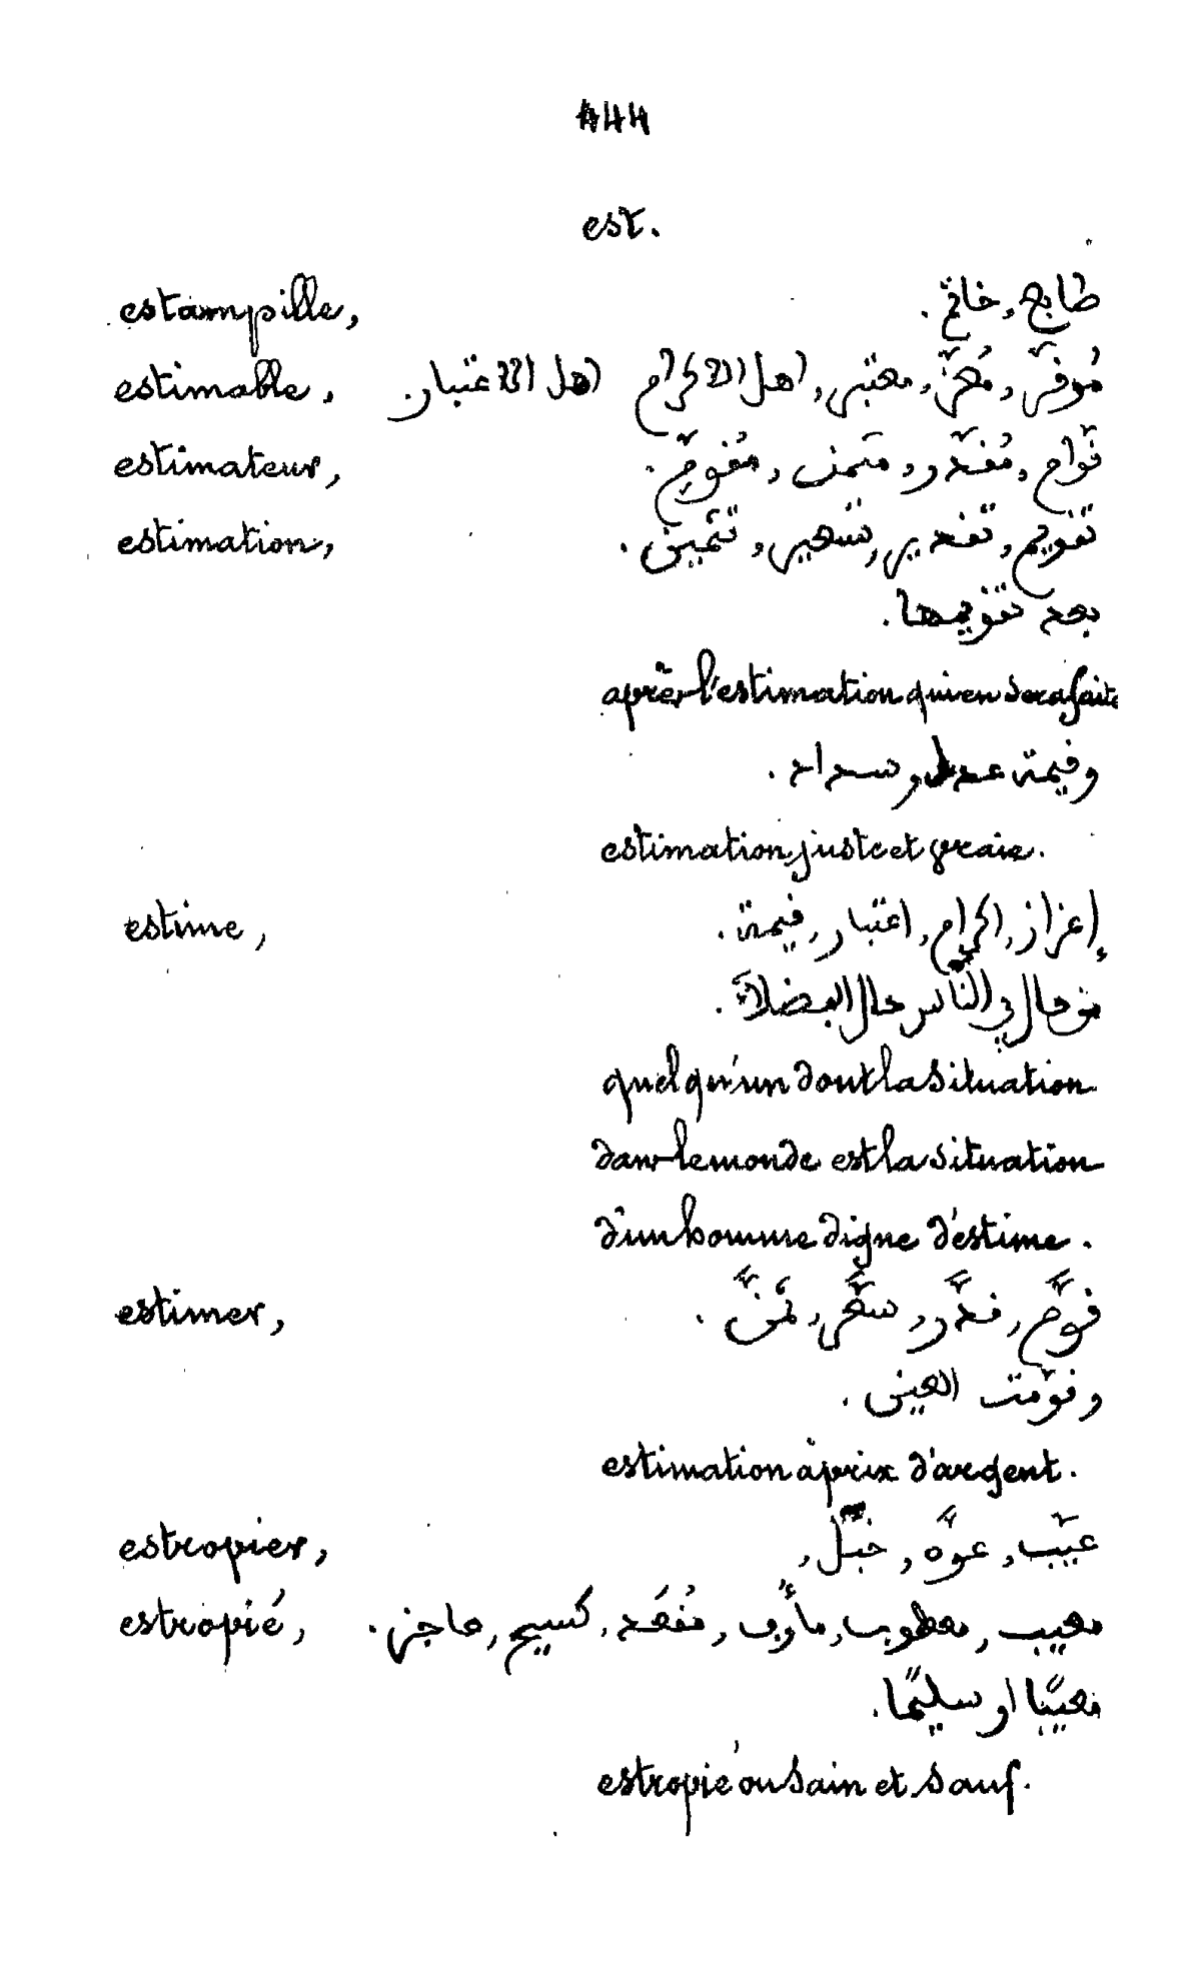 444
est.
estampille, طابع, خاتم.
estimable, مُوقّر, مُعزّ, معتبر, اهل الاكرام اهل الاعتبار.
estimateur, قوّام, مُقدّر, مثمّن, مُقوّم.
estimation, تقويم, تقدير, تسعير, تثمين.
بعد تقويمها.
après l'estimation qui en sera faite
وقيمة عدل وسداد.
estimation juste et vraie.
estime, إعزاز, اكرام, اعتبار, قيمة.
حال في النّاس حال الفضلاء.
quelqu'un dont la situation
dans le monde est la situation
d'un homme digne d'estime.
estimer, قوّم, قدّر, سعّر, ثمّن.
وقوّمت العين.
estimation à prix d'argent.
estropier, عيّب, عوّه, خبّل,
estropié, معيب, معطوب, مأوف, مُقعَد, كسيح, عاجز.
معيّبًا او سليمًا.
estropié ou sain et sauf.